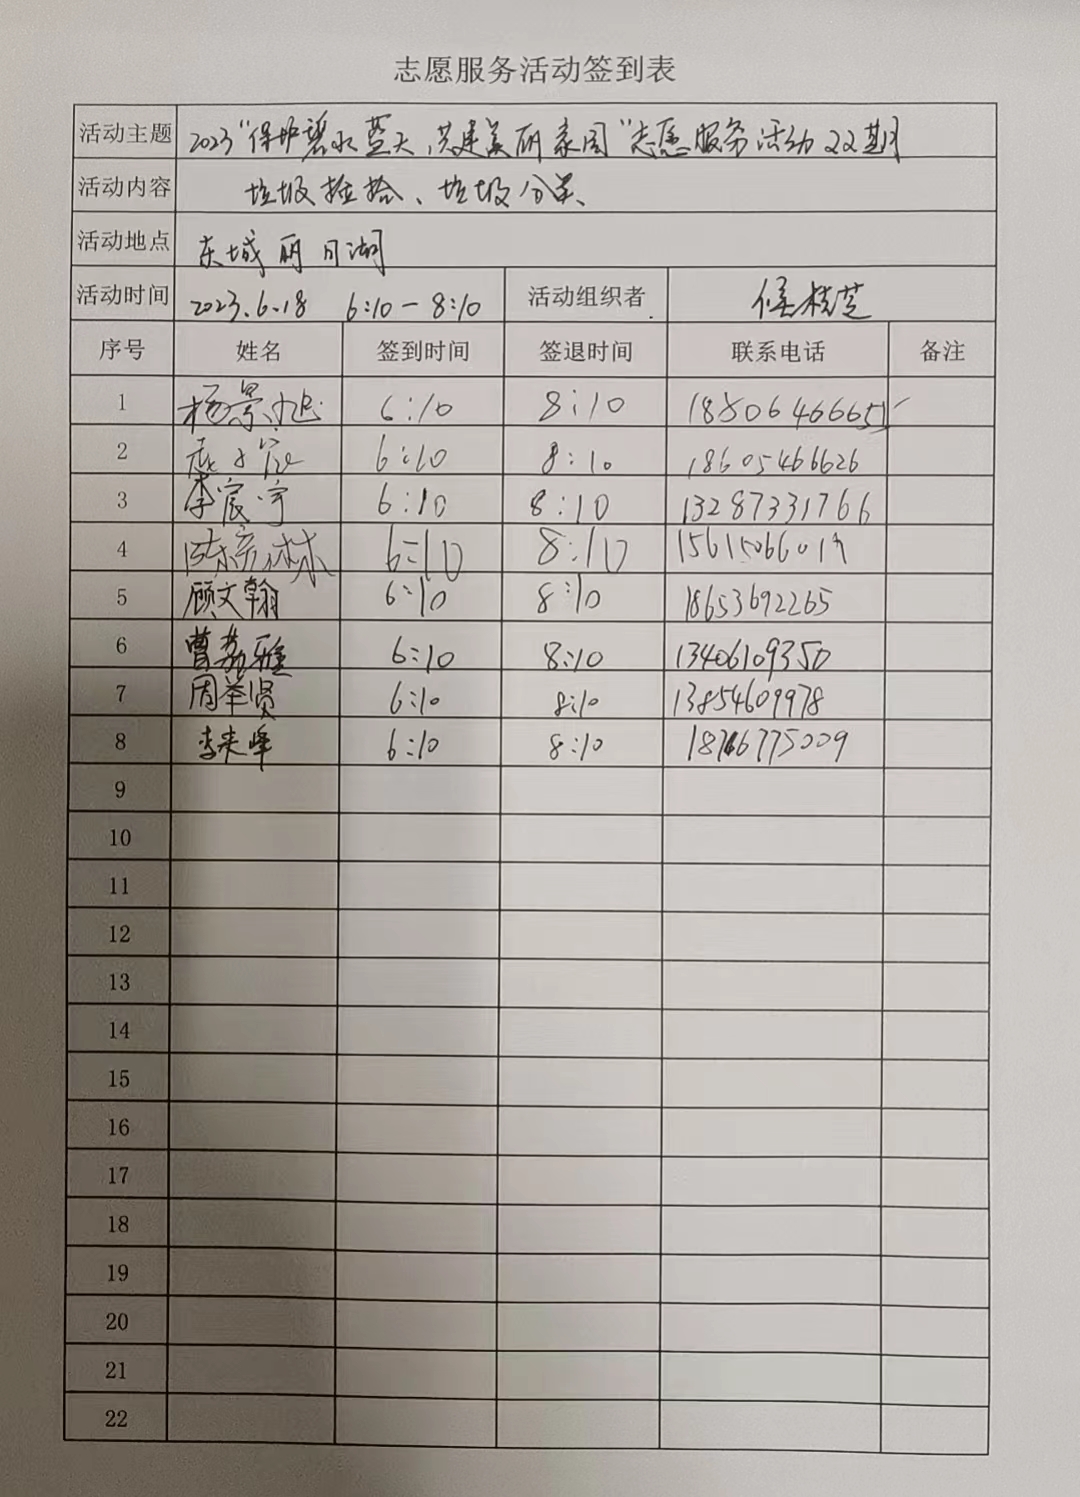 志愿服务活动签到表
活动主题 2023“保护碧水蓝天,共建美丽家园”志愿服务活动22期
活动内容 垃圾捡拾、垃圾分类、
活动地点 东城丽日湖
活动时间 2023.6.18 6:10-8:10 活动组织者 候桂芝
序号 姓名 签到时间 签退时间 联系电话 备注
1 杨景旭 6:10 8:10 18806466651
2 6:10 8:10 18605466626
3 李宸宇 6:10 8:10 13287331766
4 6:10 8:10
5 顾文翰 6:10 8:10 18653692265
6 曹荔雅 6:10 8:10 13406109350
7 周举贤 6:10 8:10 13854609978
8 李来峰 6:10 8:10 18766775009
9
10
11
12
13
14
15
16
17
18
19
20
21
22